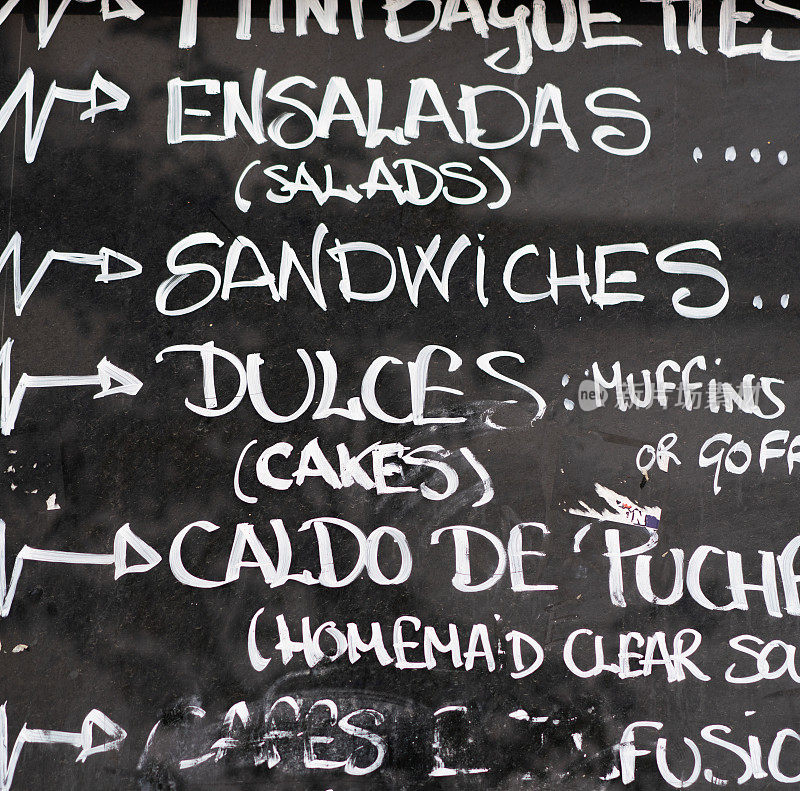 MINI BAGUETTES
ENSALADAS .....
(SALADS)
SANDWICHES ..
DULCES : MUFFINS
(CAKES) OR GOFR
CALDO DE "PUCHE
(HOMEMA'D CLEAR SOU
CAFES E FUSIO